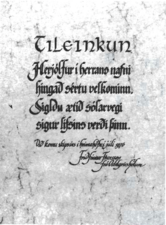 Tileinkun
Herjólfur í herrans nafni
hingað sértu velkominn.
Sigldu ætíð sólarvegi
sigur lífsins verði þinn.